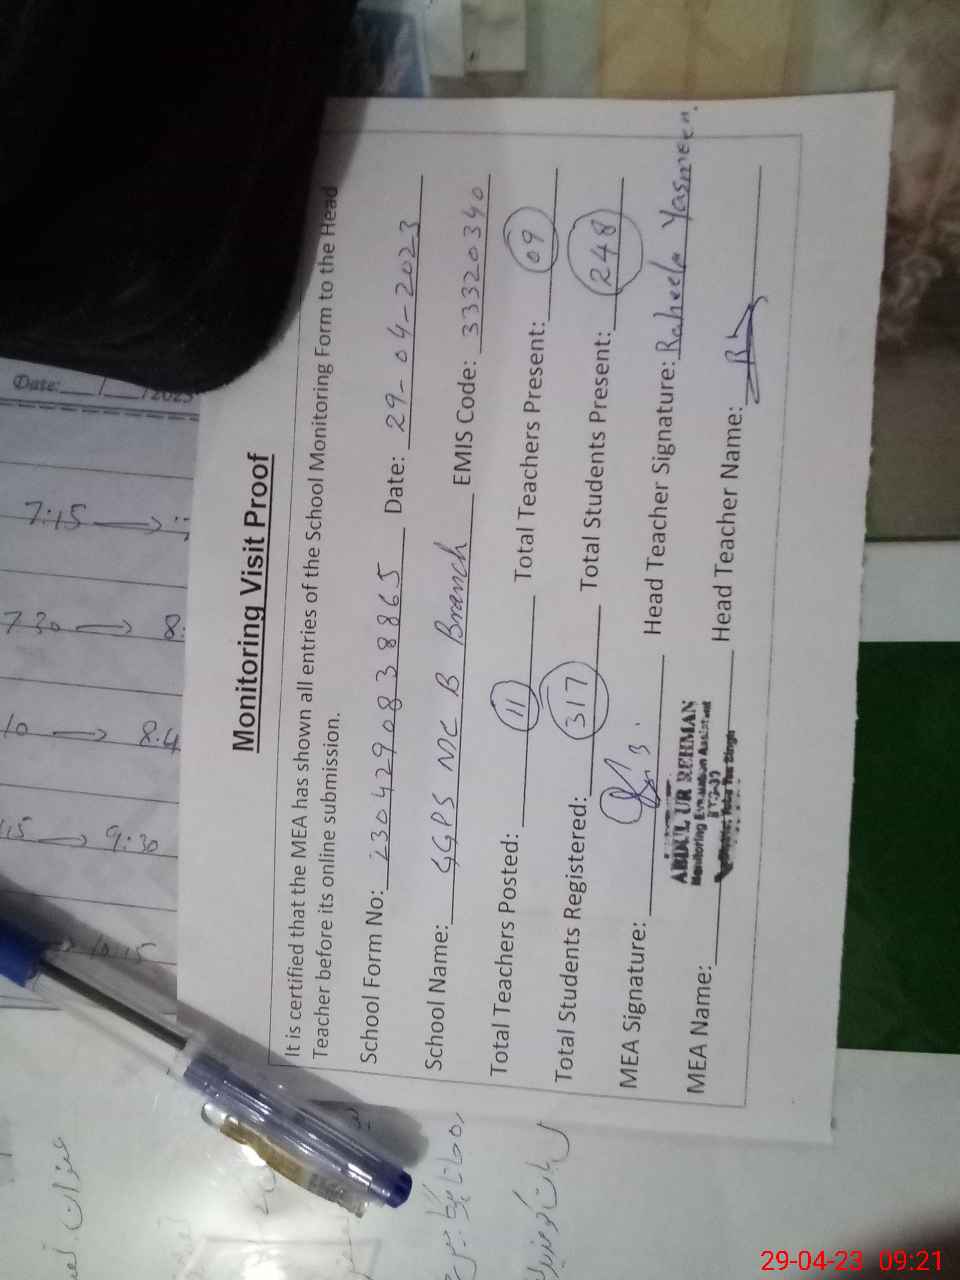 Monitoring Visit Proof
It is certified that the MEA has shown all entries of the School Monitoring Form to the Head
Teacher before its online submission.
School Form No: 2304290838865 Date: 29-04-2023
School Name: GGPS MC B Branch EMIS Code: 33320340
Total Teachers Posted: 11 Total Teachers Present: 09
Total Students Registered: 317 Total Students Present: 248
MEA Signature: Head Teacher Signature: Raheela Yasmeen.
ABDUL UR REHMAN
Monitoring Evaluation Assistant
MEA Name: Head Teacher Name:
Date: / /2023
7:15 →
7:30 → 8:
10 → 8:4
:15 → 9:30
→ 10:15
عنوان
29-04-23 09:21